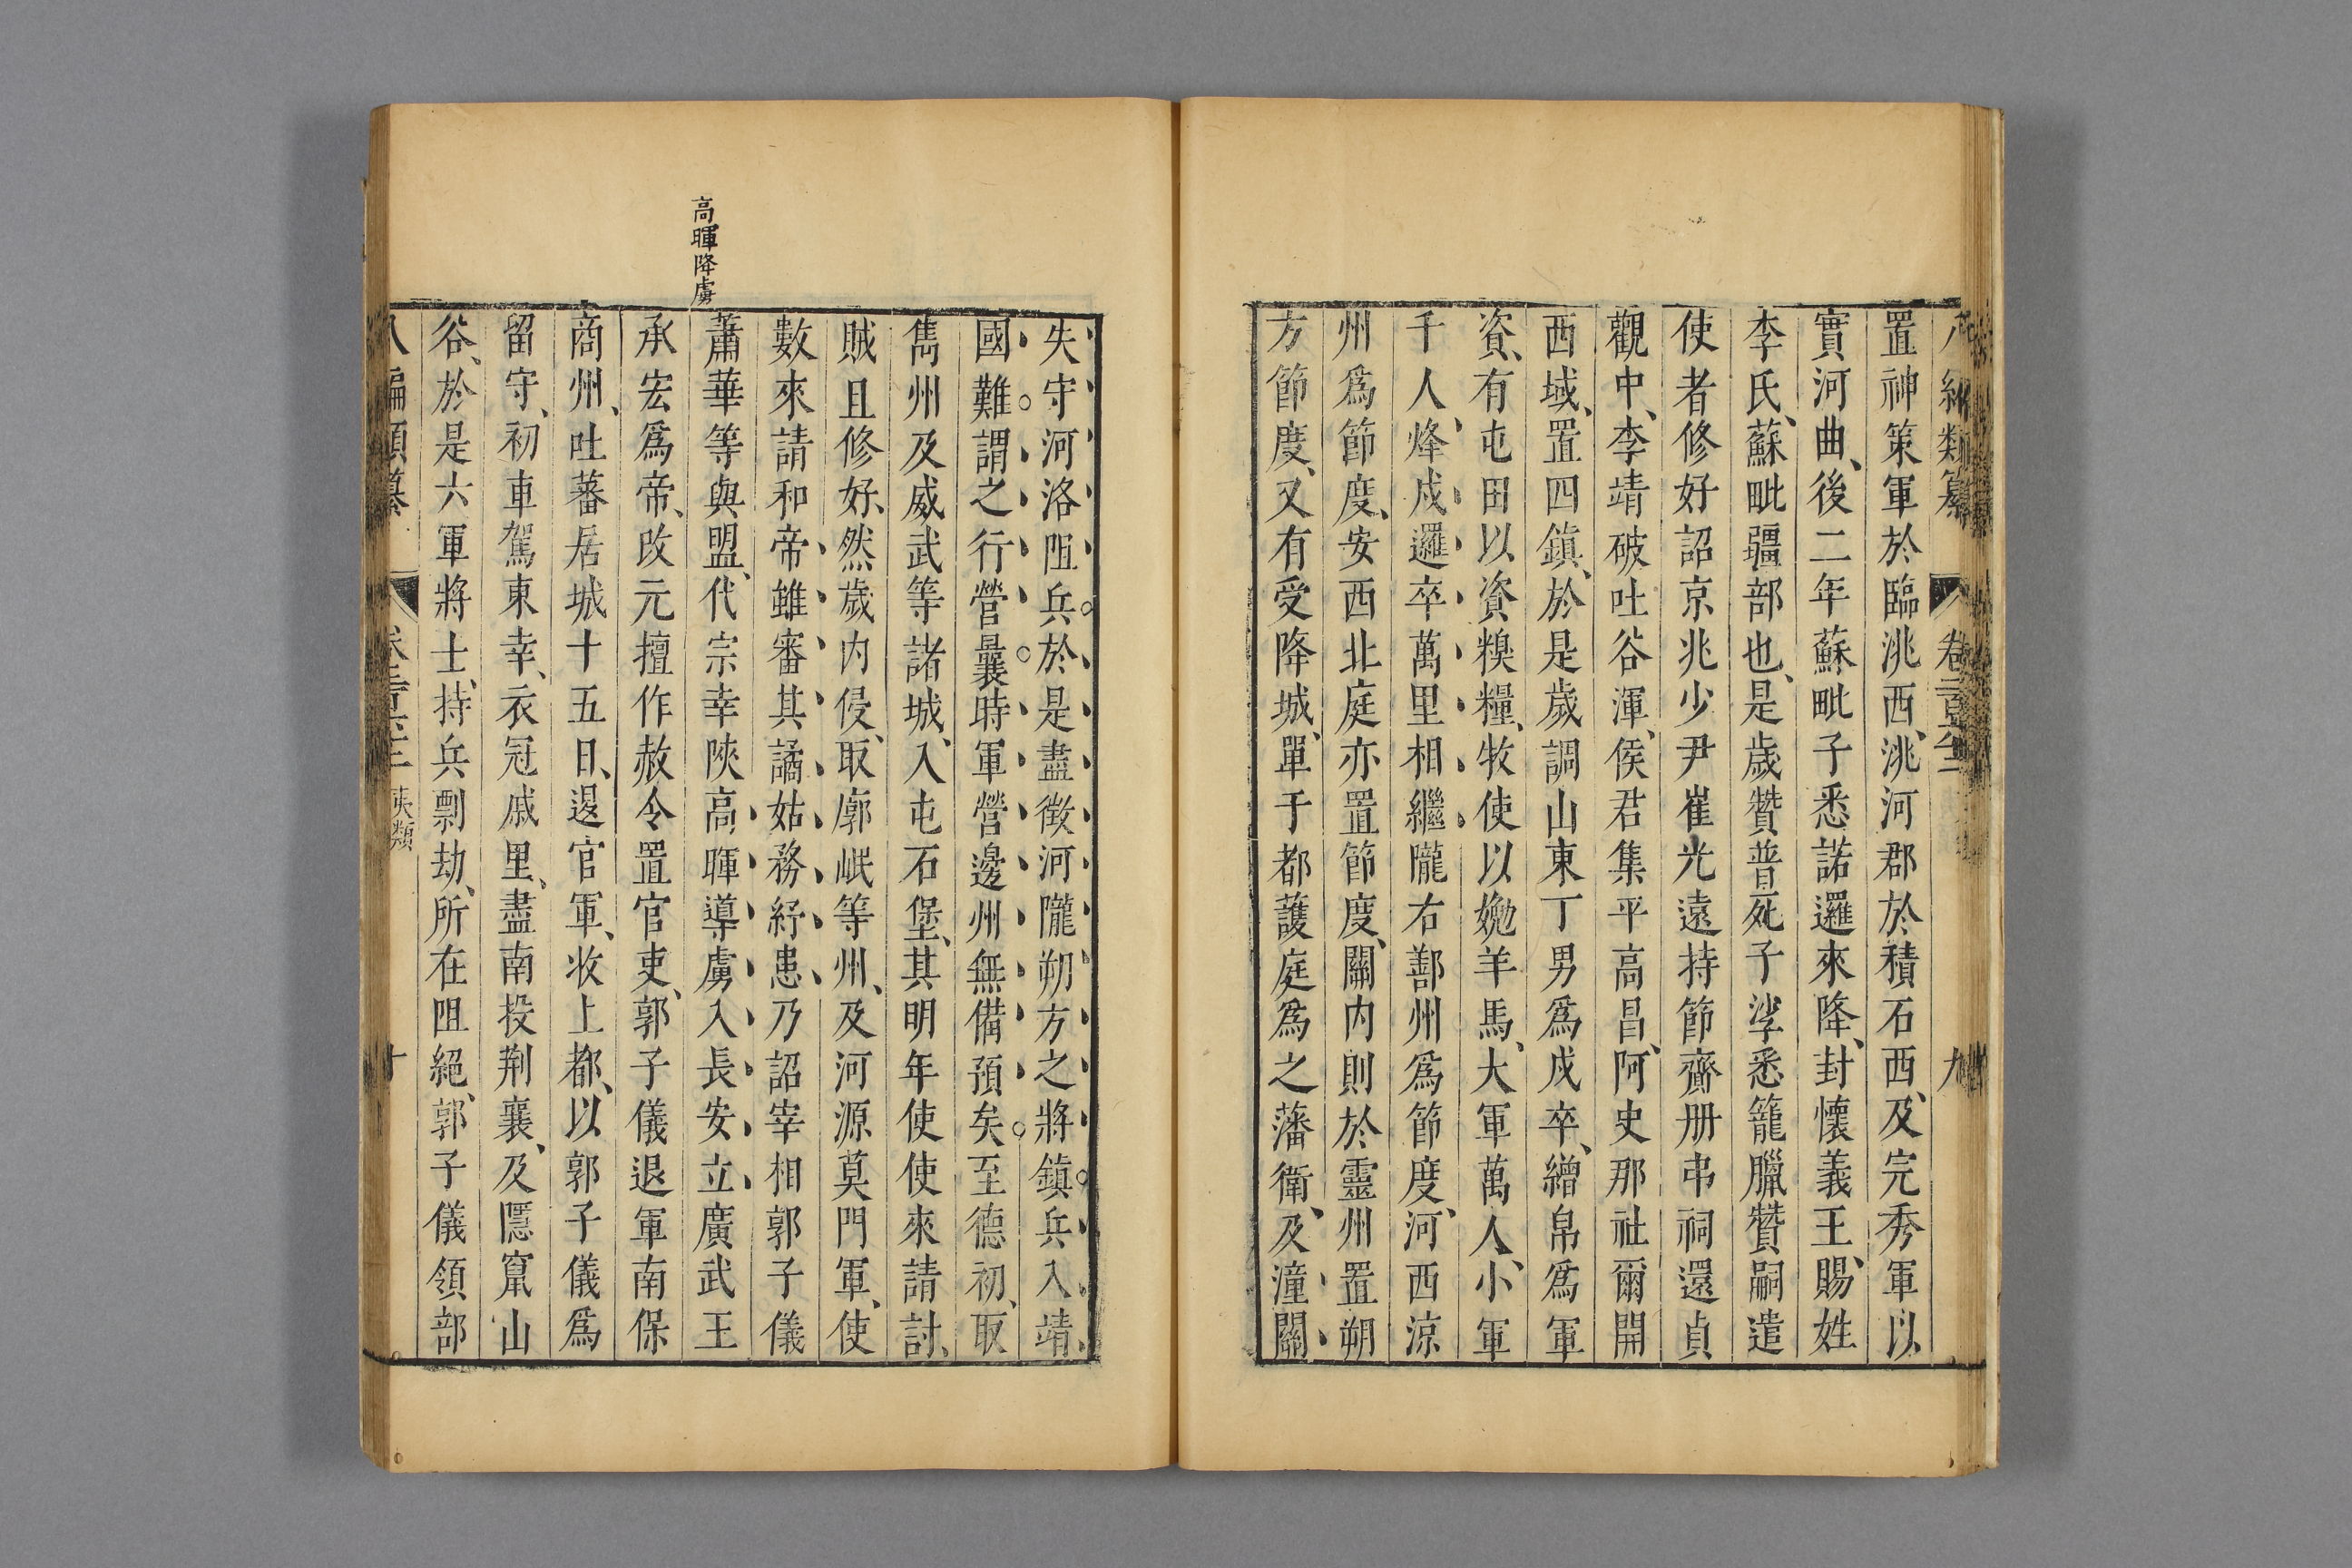 八編類纂 卷二百 九
置神策軍於臨洮西、洮河郡於積石西、及完秀軍以
實河曲、後二年蘇毗子悉諾邏來降、封懷義王、賜姓
李氏、蘇毗疆部也、是歲贊普死子挲悉籠臘贊嗣遣
使者修好詔京兆少尹崔光遠持節齎册弔祠還貞
觀中、李靖破吐谷渾、侯君集平高昌、阿史那社爾開
西域、置四鎮、於是歲調山東丁男爲戍卒、繒帛爲軍
資、有屯田以資糗糧、牧使以娩羊馬、大軍萬人、小軍
千人、烽戍邏卒萬里相繼隴右鄯州爲節度、河西涼
州爲節度、安西北庭亦置節度、關内則於靈州置朔
方節度、又有受降城、單于都護庭爲之藩衛、及潼關
失守河洛阻兵。於是盡徵河隴朔方之將鎮。兵入靖
國難。謂之行營。曩時軍營邊州無備預矣。至德初、取
雋州及威武等諸城、入屯石堡、其明年使使來請討、
賊且修好、然歲内侵、取廓岷等州、及河源莫門軍、使
數來請和帝雖審其譎姑務紓患乃詔宰相郭子儀
高暉降虜
蕭華等與盟、代宗幸陜高暉導虜入長安立廣武王
承宏爲帝、改元擅作赦令置官吏、郭子儀退軍南保
商州、吐蕃居城十五日、退官軍、收上都、以郭子儀爲
留守、初車駕東幸、衣冠戚里、盡南投荆襄、及隱竄山
谷、於是六軍將士、持兵剽劫、所在阻絕、郭子儀領部
八編類纂 夷類 十